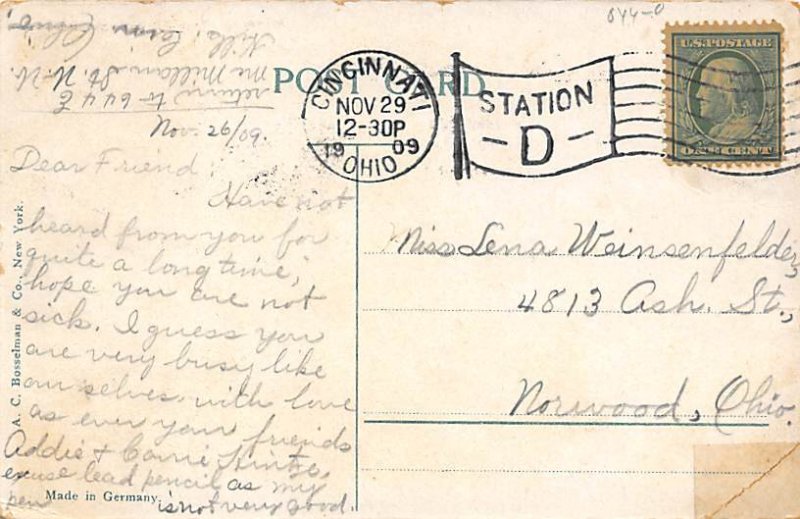 844-0
U.S. POSTAGE
ONE CENT
POST CARD
CINCINNATI
NOV 29
12-30P
19 09
OHIO
STATION
- D -
return to 644 E
Mc Millan St. W. H.
Cin. Ohio.
Nov. 26/09.
Dear Friend:
Have not
heard from you for
quite a long time,
hope you are not
sick. I guess you
are very busy like
ourselves. with love
as ever your friends
Addie + Carrie
excuse lead pencil as my
pen is not very good.
Miss Lena Weinsenfelder,
4813 Ash. St.,
Norwood, Ohio.
A. C. Bosselman & Co., New York.
Made in Germany.